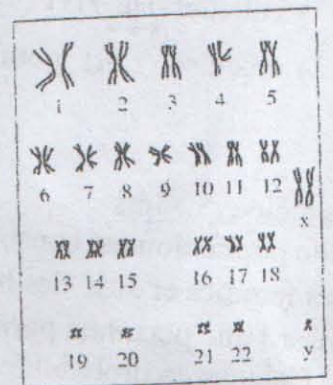 1 2 3 4 5
6 7 8 9 10 11 12
x
13 14 15 16 17 18
19 20 21 22 y